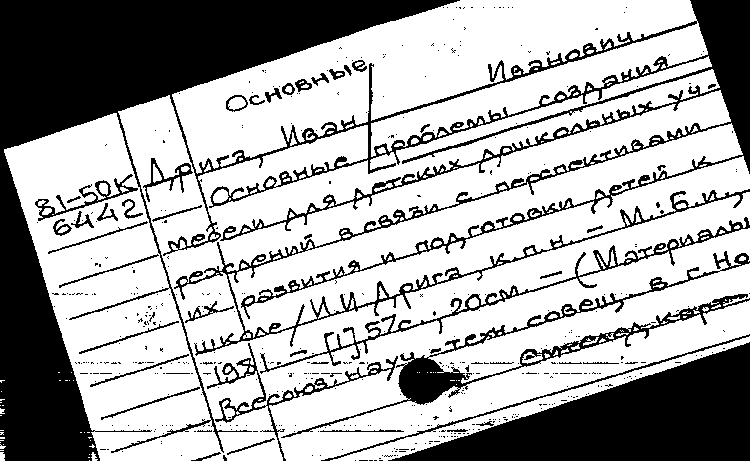 Основные
Дрига, Иван Иванович.
81-50К
6442
Основные проблемы создания
мебели для детских дошкольных уч-
реждений в связи с перспективами
их развития и подготовки детей к
школе / И.И Дрига, к.п.н. – М.: Б.и.,
1981. – [1], 57с.; 20см. – (Материалы
Всесоюз. науч.-техн. совещ. в г. Но